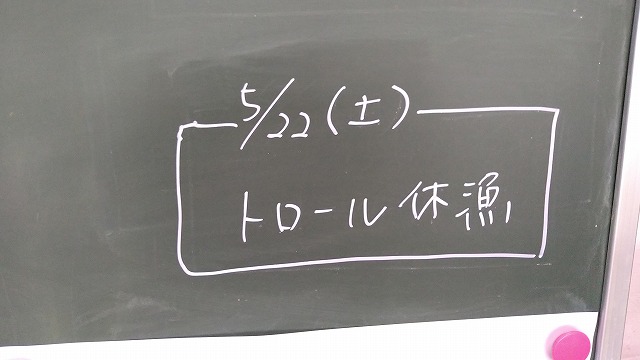 5/22(土)
トロール休漁